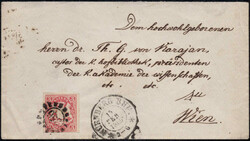 Dem hochwohlgeborenen
herrn dr. Th. G. von Karajan,
custos der k. hofbibliothek, präsidenten
der k. akademie der wissenschaften,
etc. etc.
zu
Wien.